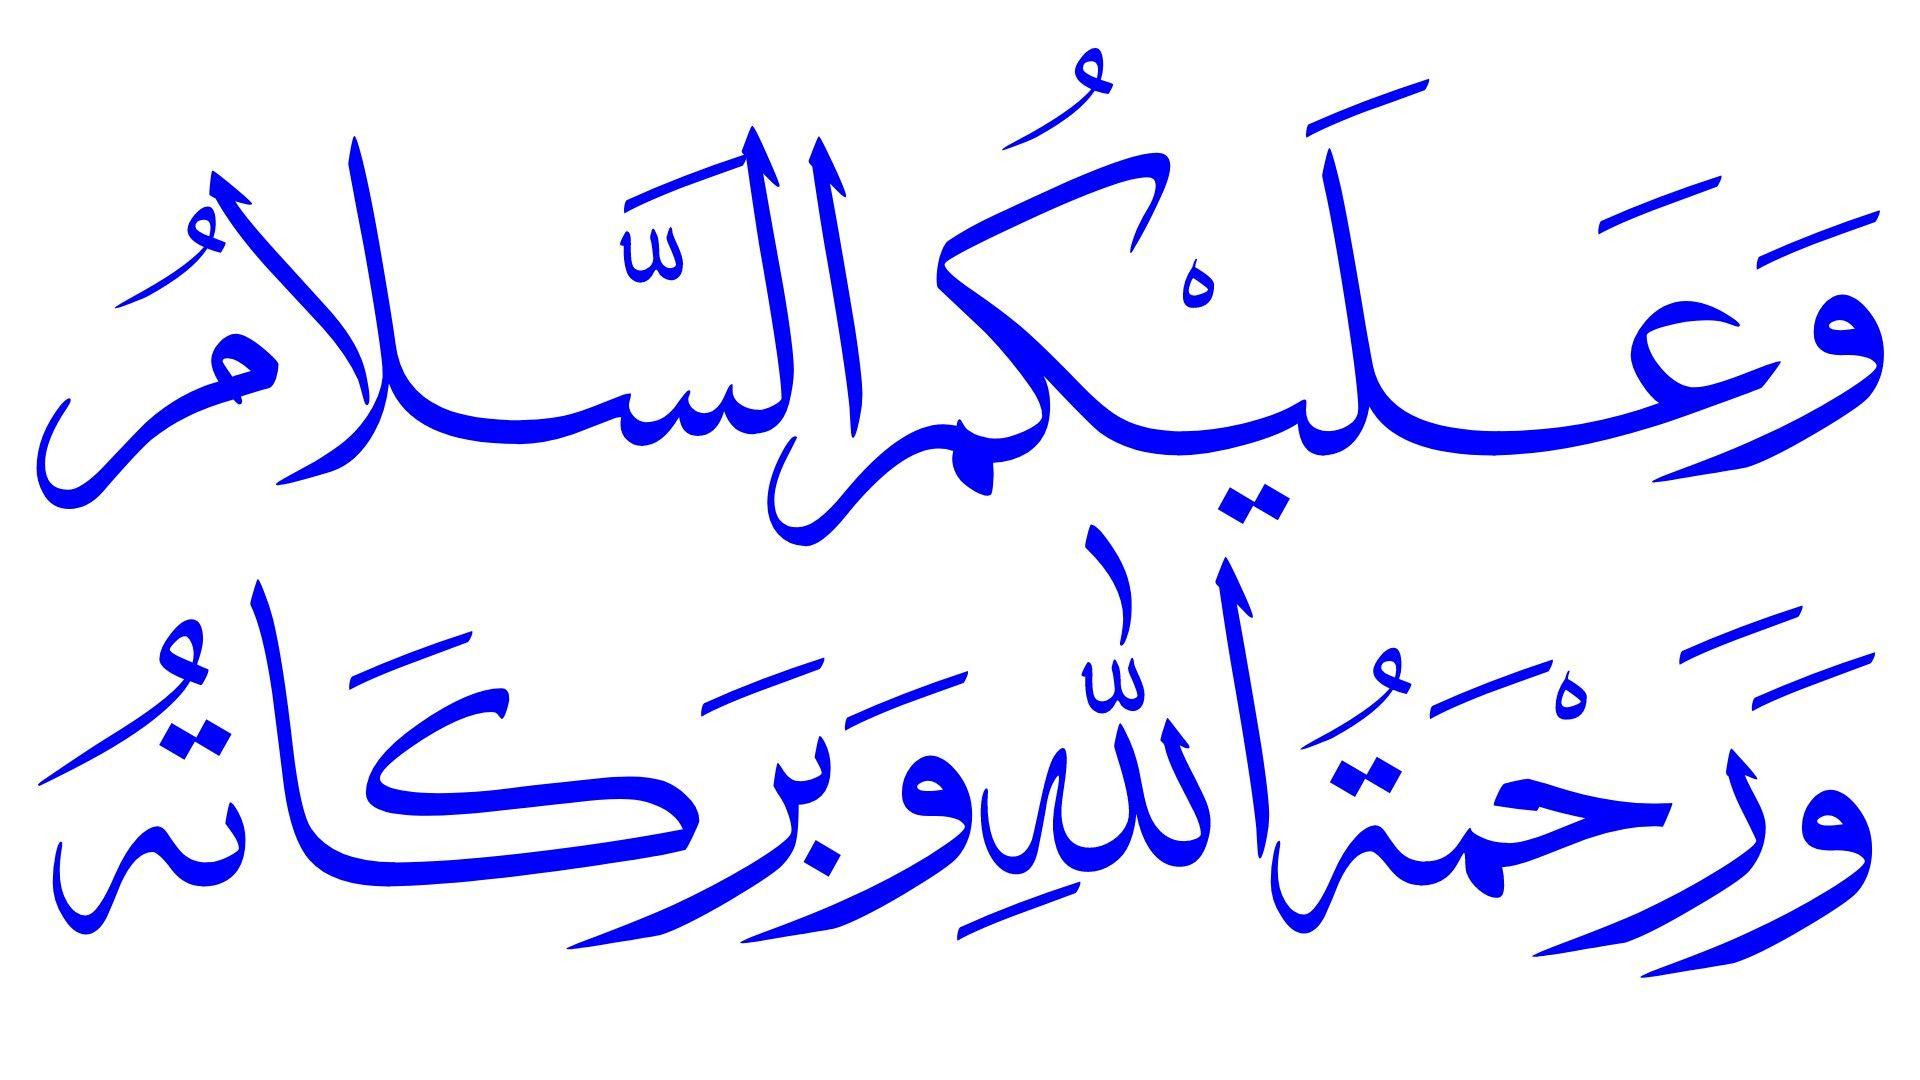 وَعَلَيْكُمُ السَّلَامُ
وَرَحْمَةُ اللّٰهِ وَبَرَكَاتُهُ